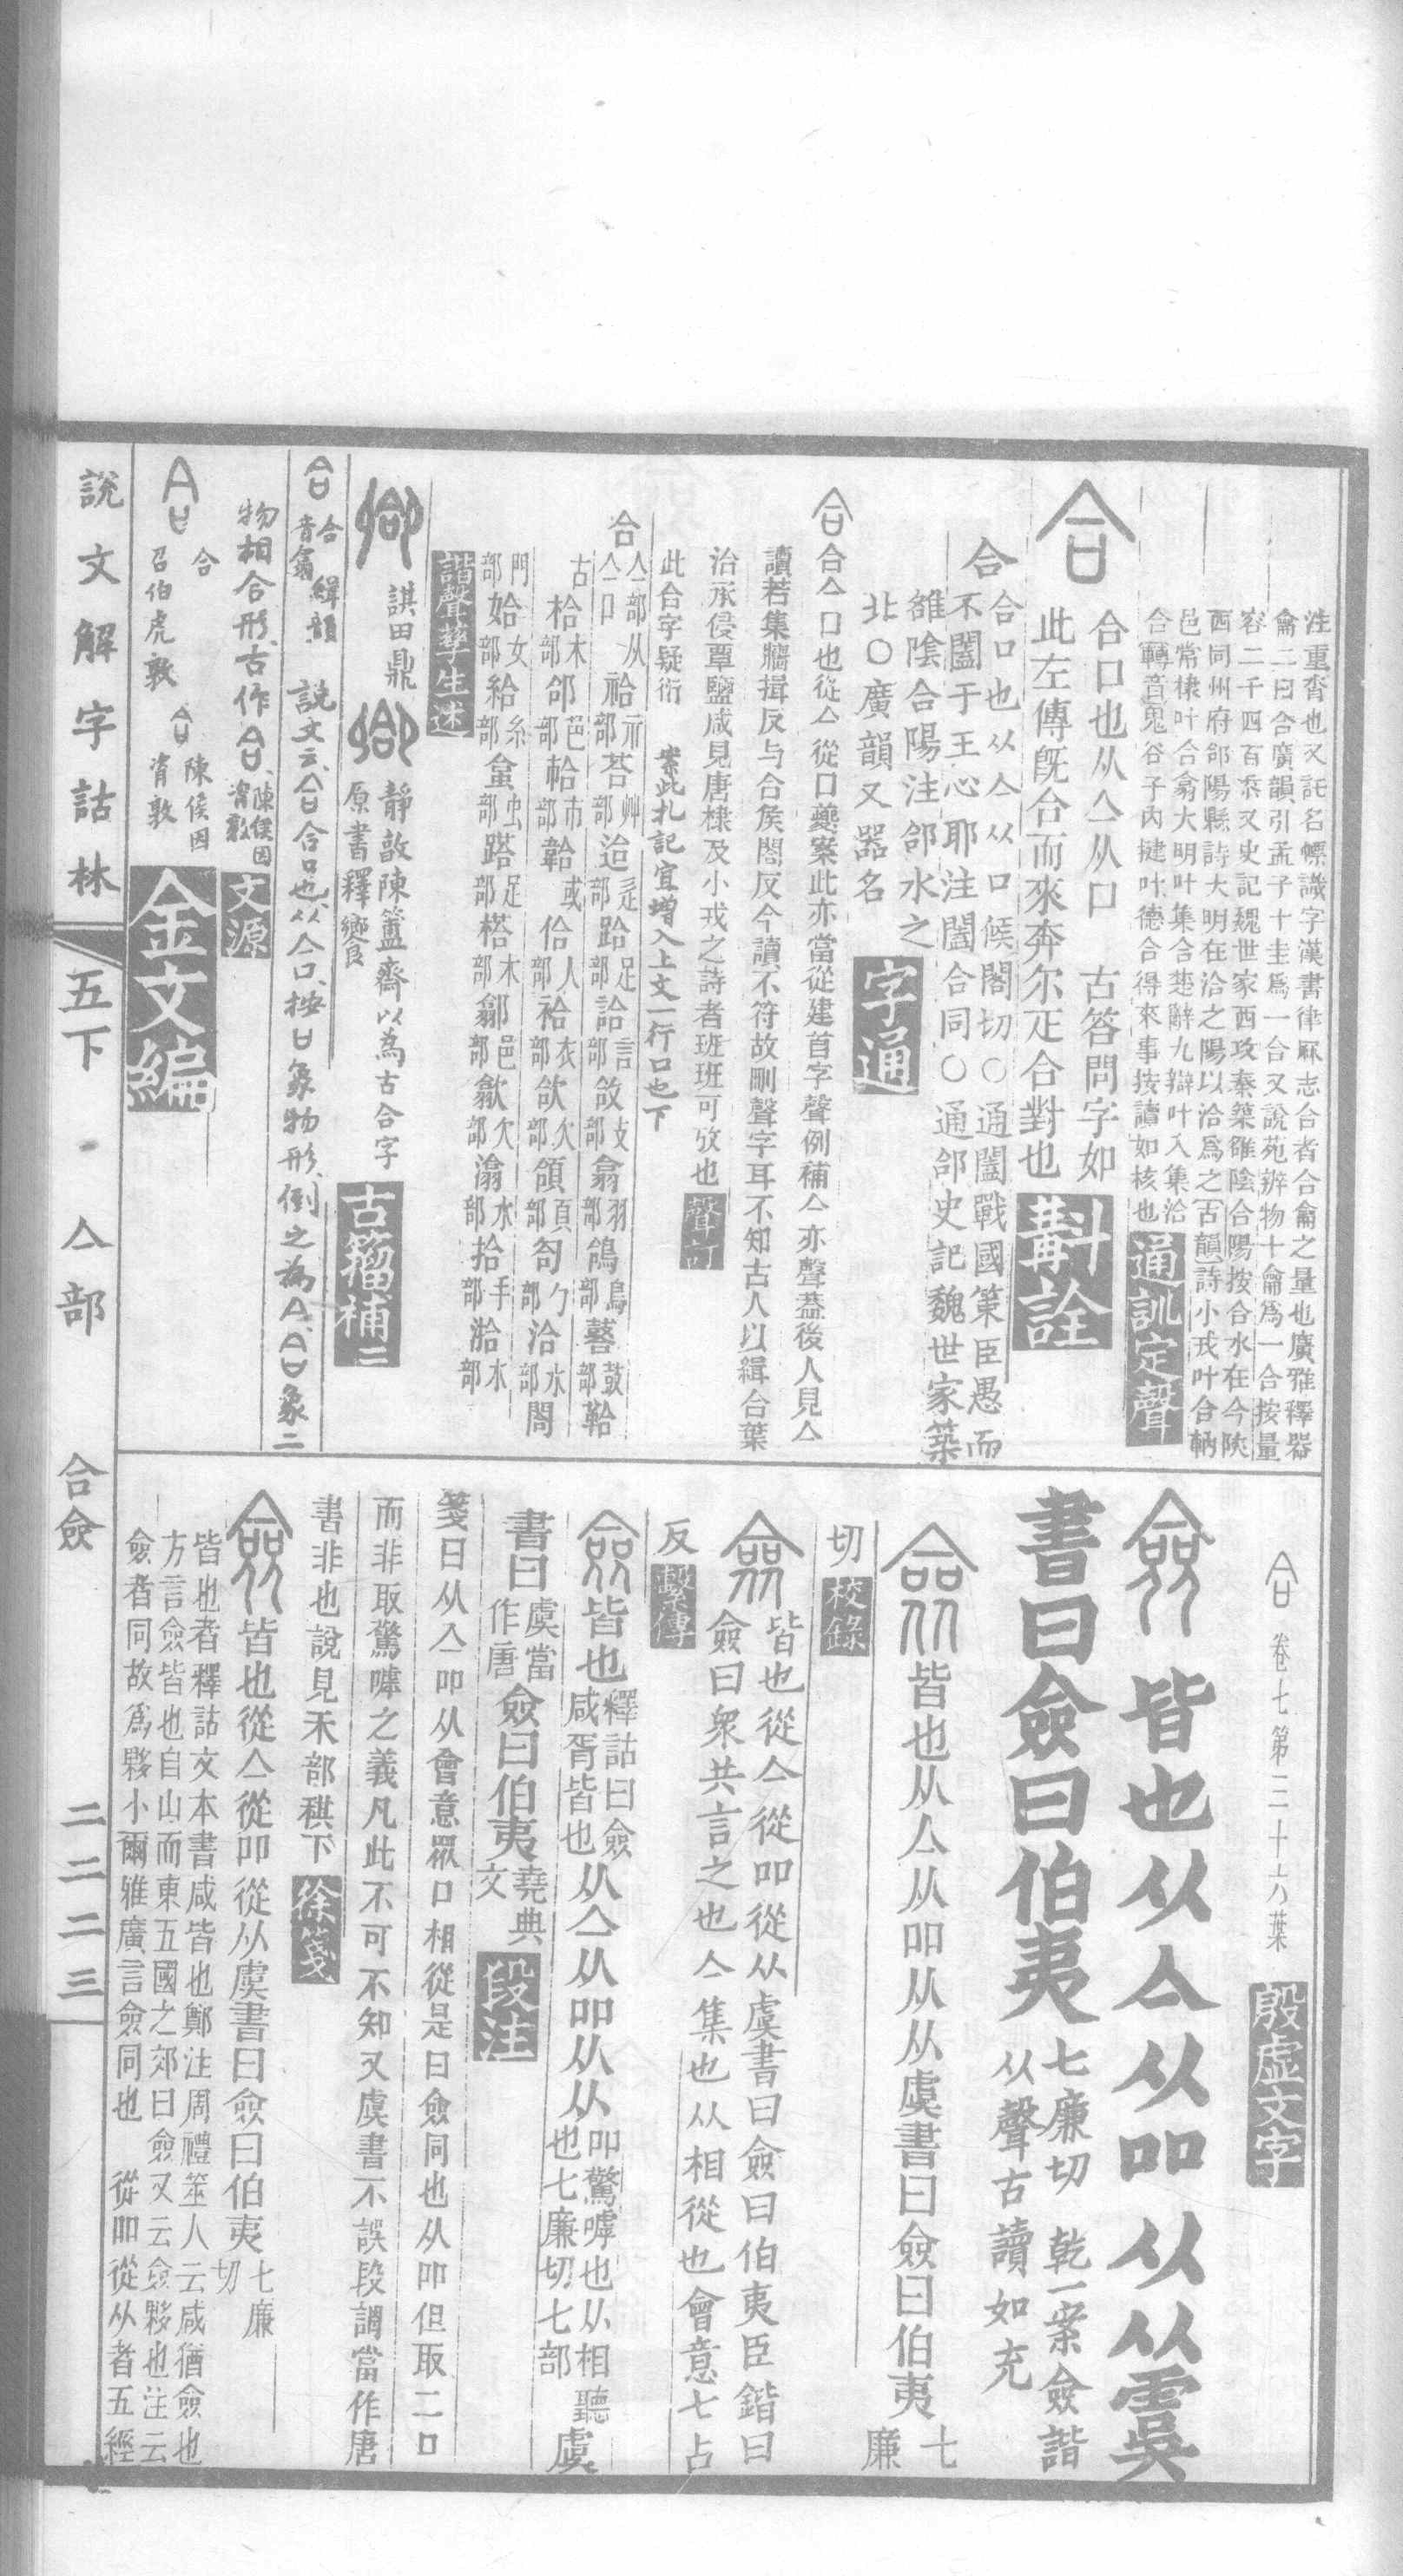 注重沓也又託名幖識字漢書律厤志合者合龠之量也廣雅釋器
龠二曰合廣韻引孟子十圭爲一合又說苑辨物十龠爲一合按量
容二千四百黍又史記魏世家西攻秦築雒陰合陽按合水在今陝
西同州府郃陽縣詩大明在洽之陽以洽爲之古韻詩小戎叶合軜
邑常棣叶合翕大明叶集合楚辭九辯叶入集洽
合轉音鬼谷子內揵叶德合得來事按讀如核也
通訓定聲
合口也从亼从口　古答問字如
此左傳旣合而來奔尔疋合對也
斠詮
合
合口也从亼从口候閤切○通闔戰國策臣愚而
不闔于王心耶注闔合同○通郃史記魏世家築
雒陰合陽注郃水之
北○廣韻又器名
字通
合亼口也從亼從口夔案此亦當從建首字聲例補亼亦聲葢後人見亼
讀若集牆揖反与合矦閤反今讀不符故刪聲字耳不知古人以緝合葉
洽承侵覃鹽咸見唐棣及小戎之詩者班班可攷也
聲訂
此合字疑衍　案此札記宜增入上文一行口也下
合
亼部从亼口
祫示部荅艸部迨辵部跲足部詥言部敆攴部翕羽部鴿鳥部鼛鼓部鞈
古
枱木部郃邑部帢巾部韐或佮人部袷衣部欱欠部頜頁部匌勹部洽水部閤
門部姶女部給糸部蛤虫部蹹足部榙木部鄒邑部歙欠部潝水部拾手部湁水部
諧聲孳生述
諆田鼎
靜敦陳簠齋以為古合字
原書釋饗
古籀補三
合　緝韻
音翕
說文云合合口也从亼口按口象物形倒之為A合象二
物相合形古作合陳侯因𬁼敦
文源
合
召伯虎敦
陳侯因𬁼敦
金文編
說文解字詁林
五下
亼部
合僉
二二二三
卷七第三十六葉
殷虛文字
僉　皆也从亼从吅从从虞
書曰僉曰伯夷
七廉切　乾一案僉諧
从聲古讀如充
皆也从亼从吅从从虞書曰僉曰伯夷七廉
切
校錄
皆也從亼從吅從从虞書曰僉曰伯夷臣鍇曰
僉曰衆共言之也亼集也从相從也會意七占
反
繫傳
皆也釋詁曰僉咸胥皆也从亼从吅从从吅驚嘑也从相聽也七廉切七部虞
書曰虞當作唐僉曰伯夷堯典文
段注
箋曰从亼吅从會意眾口相從是曰僉同也从吅但取二口
而非取驚嘑之義凡此不可不知又虞書不誤段謂當作唐
書非也說見禾部稘下
徐箋
皆也從亼從吅從从虞書曰僉曰伯夷七廉切
皆也者釋詁文本書咸皆也鄭注周禮筮人云咸猶僉也
方言僉皆也自山而東五國之郊曰僉又云僉夥也注云
僉者同故爲夥小爾雅廣言僉同也　從吅從从者五經